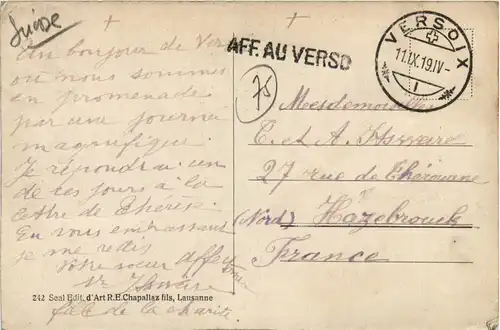 Suisse
AFF. AU VERSO
VERSOIX
11.IX.19.IV-
1
75
Un bonjour de Ver
où nous sommes
en promenade
par une journée
magnifique.
Je répondrai un
de ces jours à la
lettre de Thérèse.
En vous embrassant
je me redis
Votre sœur affect
fille de la charité
Mesdemoiselles
T. et A.
27 rue de Thérouane
(Nord) Hazebrouck
France
242 Seal Edit. d'Art R.E.Chapallaz fils, Lausanne